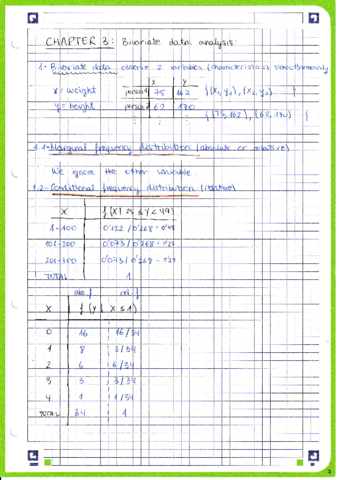 CHAPTER 3: Bivariate data analysis
1- Bivariate data: observe 2 variables (characteristics) simoultaneously
X Y
X = weight person 1 75 162 {(X₁, Y₁), (X₂, Y₂) ... }
Y = height person 2 62 170 {(75, 162), (62, 170) ... }
1.1- Marginal frequency distribution (absolute or relative)
We ignore the other variable.
1.2- Conditional frequency distribution (relative)
X f(X | 25 ≤ Y < 49)
1-100 0'122 / 0'268 = 0'45
101-200 0'073 / 0'268 = 0'27
201-300 0'073 / 0'268 = 0'27
TOTAL 1
abs. f rel. f
X f (Y | X ≤ 1)
0 16 16/34
1 8 8/34
2 6 6/34
3 3 3/34
4 1 1/34
TOTAL 34 1